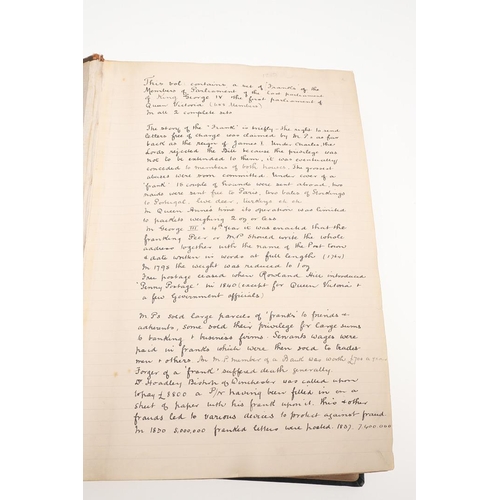 This vol: contains a set of Franks of the
Members of Parliament of the last parliament
of King George IV the first parliament of
Queen Victoria (
In all 2 complete sets
The story of the "Frank" is briefly - The right to send
letters free of charge was claimed by M.Ps as far
back as the reign of James I. Under Charles the
Lords rejected the Bill because the privilege was
not to be extended to them, it was eventually
conceded to members of both houses. The grossest
abuses were soon committed. Under cover of a
'frank' 15 couple of hounds were sent abroad, two
maids were sent free to Paris, two bales of Stockings
to Portugal, live deer, turkeys, etc etc
In Queen Anne's time its operation was limited
to packets weighing 2 oz or less
In George III's 4th year it was enacted that the
franking Peer or M.P. should write the whole
address together with the name of the Post town
& date written in words at full length
In 1795 the weight was reduced to 1 oz
Free postage ceased when Rowland Hill introduced
'Penny Postage' in 1840 (except for Queen Victoria &
a few Government officials)
M.Ps sold large parcels of 'franks' to friends &
adherents, some sold their privilege for large sums
to banking & business firms. Servants wages were
paid in franks which were then sold to trades-
men & others. An M.P. member of a Bank was worth
Forger of a 'frank' suffered death generally.
Dr Hoadley, Bishop of Winchester was called upon
to pay £8800 a P/N having been filled in on a
sheet of paper with his frank upon it. This & other
frauds led to various devices to protect against fraud
In 1830 5,000,000 franked letters were posted. 1837. 7,400,000